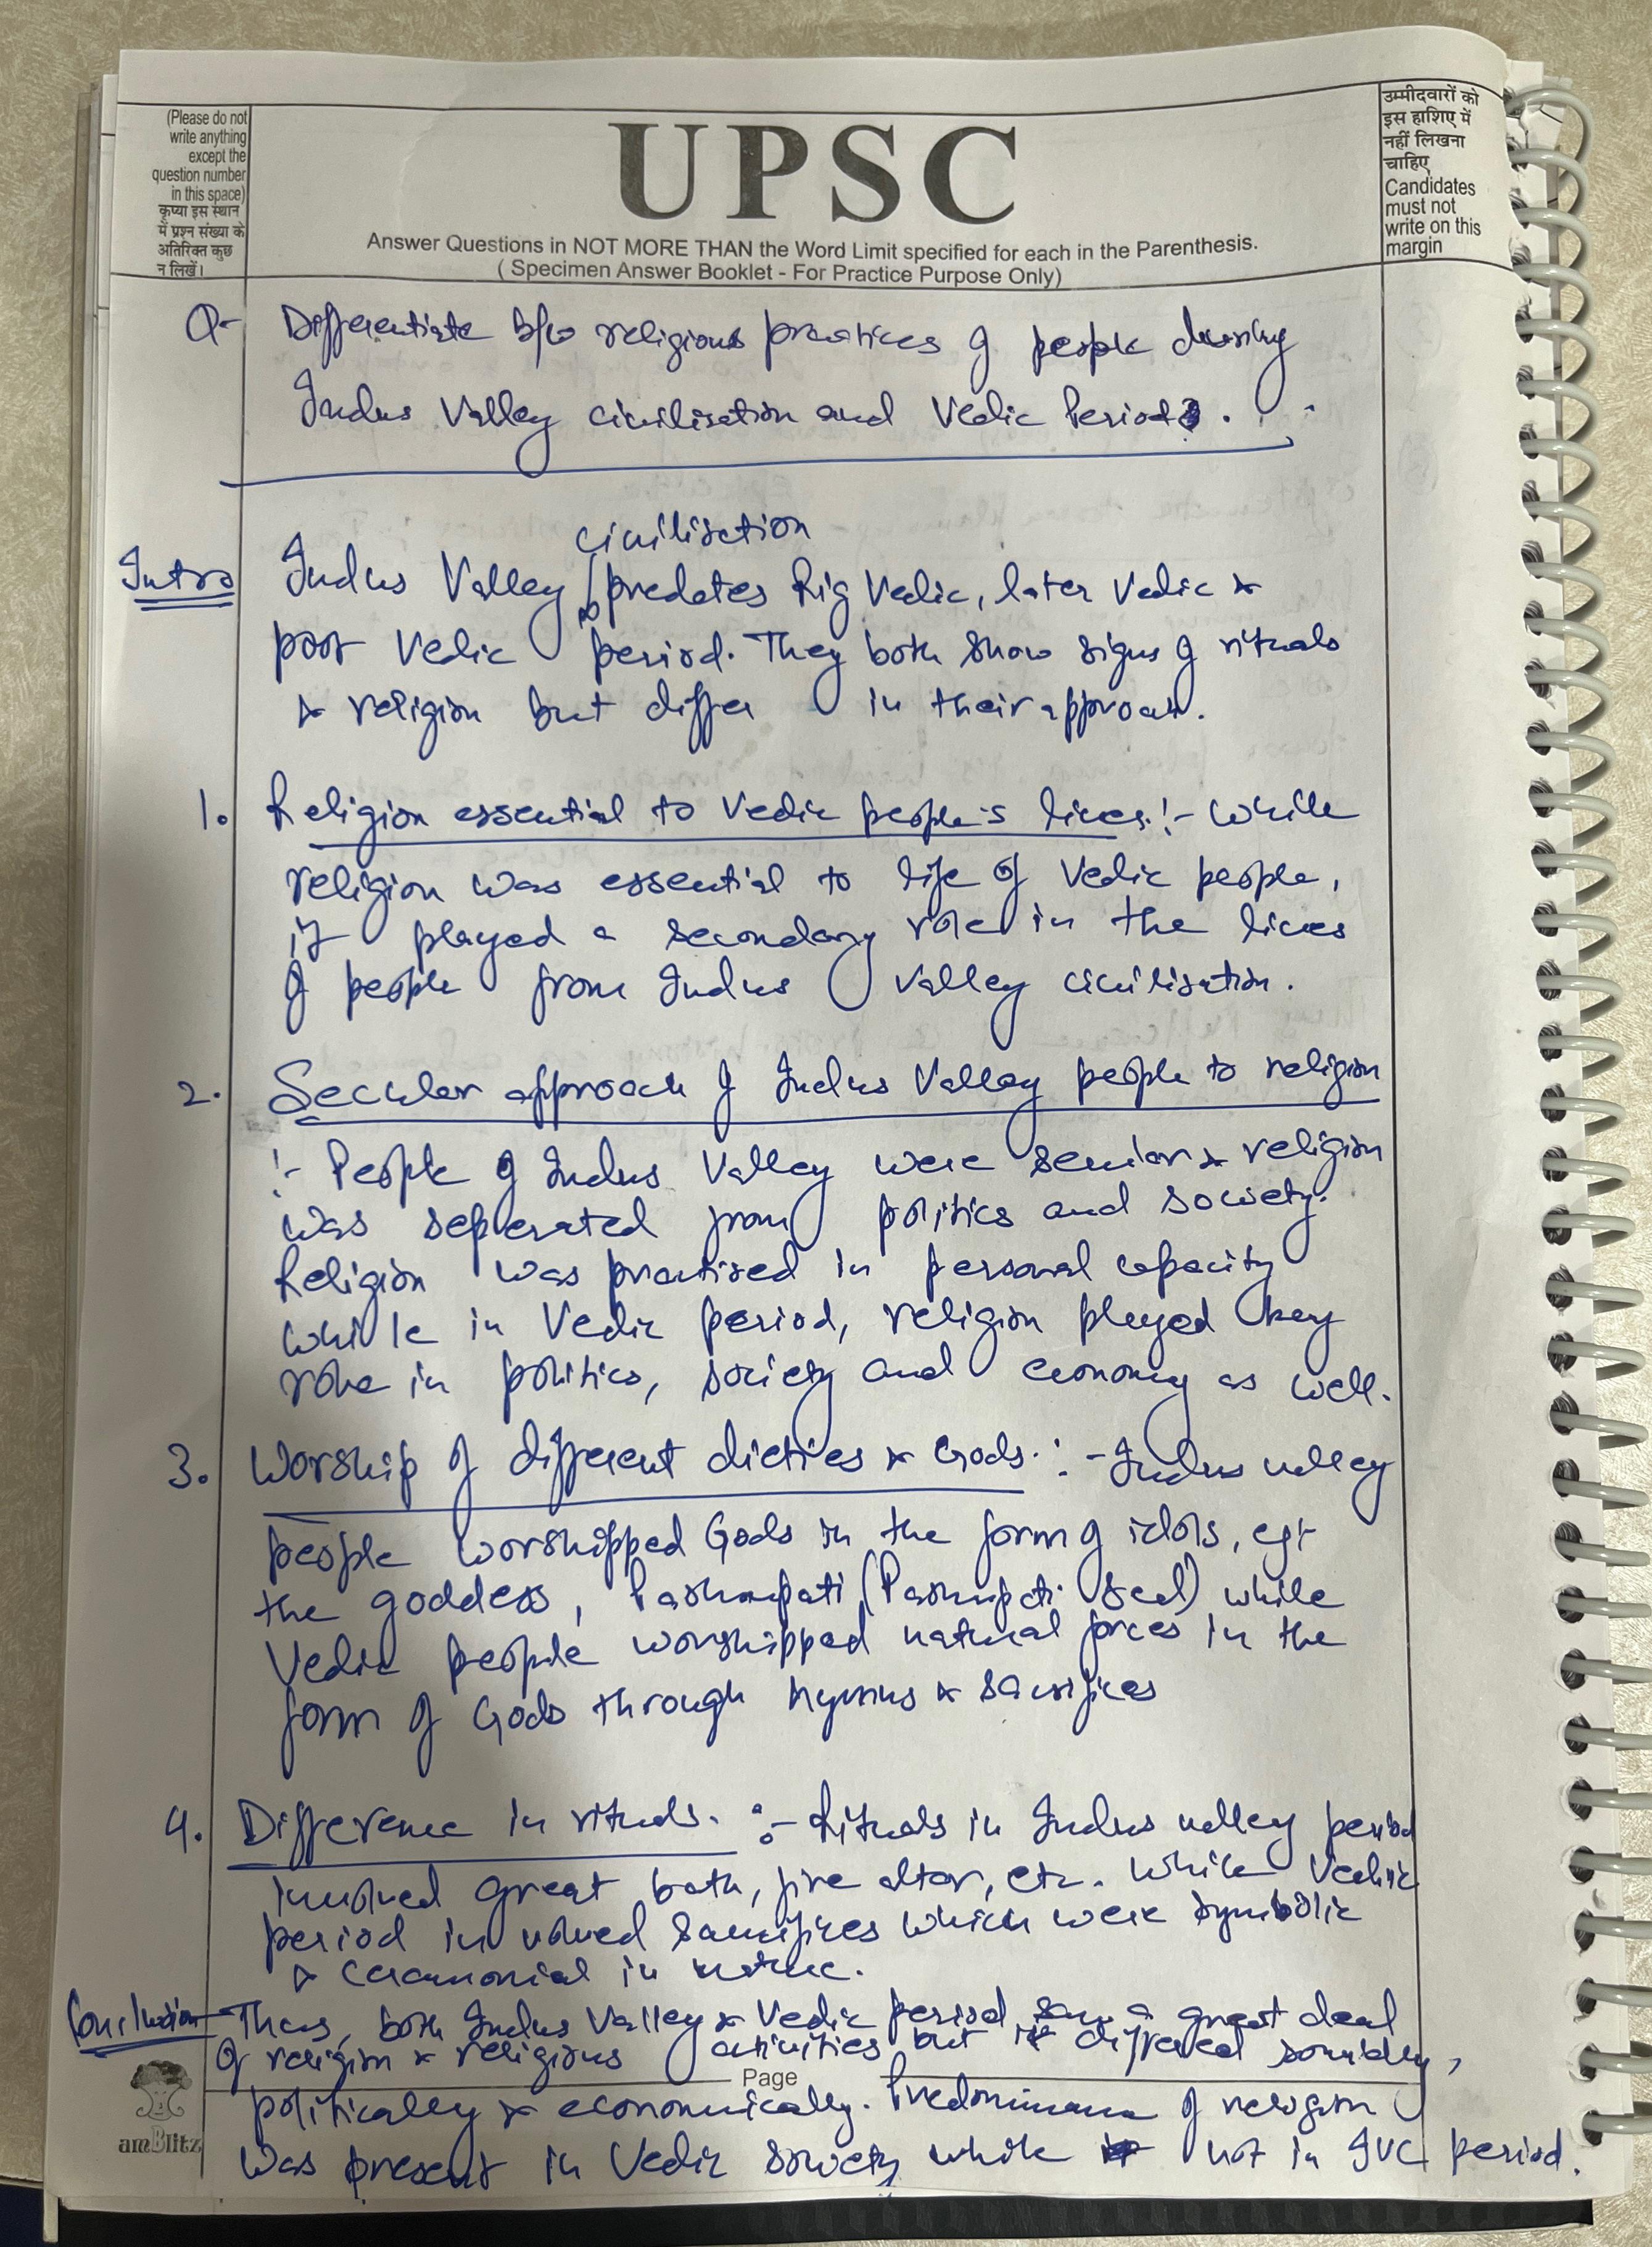 (Please do not
write anything
except the
question number
in this space)
कृप्या इस स्थान
में प्रश्न संख्या के
अतिरिक्त कुछ
न लिखें।
UPSC
Answer Questions in NOT MORE THAN the Word Limit specified for each in the Parenthesis.
( Specimen Answer Booklet - For Practice Purpose Only)
उम्मीदवारों को
इस हाशिए में
नहीं लिखना
चाहिए
Candidates
must not
write on this
margin
Q- Differentiate b/w religious practices of people during
Indus Valley civilisation and Vedic Period.
Intro
civilisation
Indus Valley predates Rig Vedic, later Vedic &
post Vedic period. They both show signs of rituals
& religion but differ in their approach.
1. Religion essential to Vedic people's lives :- While
religion was essential to life of Vedic people,
it played a secondary role in the lives
of people from Indus Valley civilisation.
2. Secular approach of Indus Valley people to religion
:- People of Indus Valley were & religion
was seperated from politics and society.
Religion was practised in personal capacity
while in Vedic period, religion played key
role in politics, society and economy as well.
3. Worship of different dieties & Gods :- Indus valley
people worshipped Gods in the form of idols, eg:-
the goddess, Pashupati (Pashupati Seal) while
Vedic people worshipped natural forces in the
form of Gods through hymns & sacrifices
4. Difference in rituals :- Rituals in Indus valley period
involved great bath, fire altar, etc. while Vedic
period involved sacrifices which were symbolic
& ceremonial in nature.
Conclusion - Thus, both Indus Valley & Vedic period saw a great deal
of religion & religious activities but it differed socially,
Page
politically & economically. Predominance of religion
was present in Vedic society while not in IVC period.
amBlitz